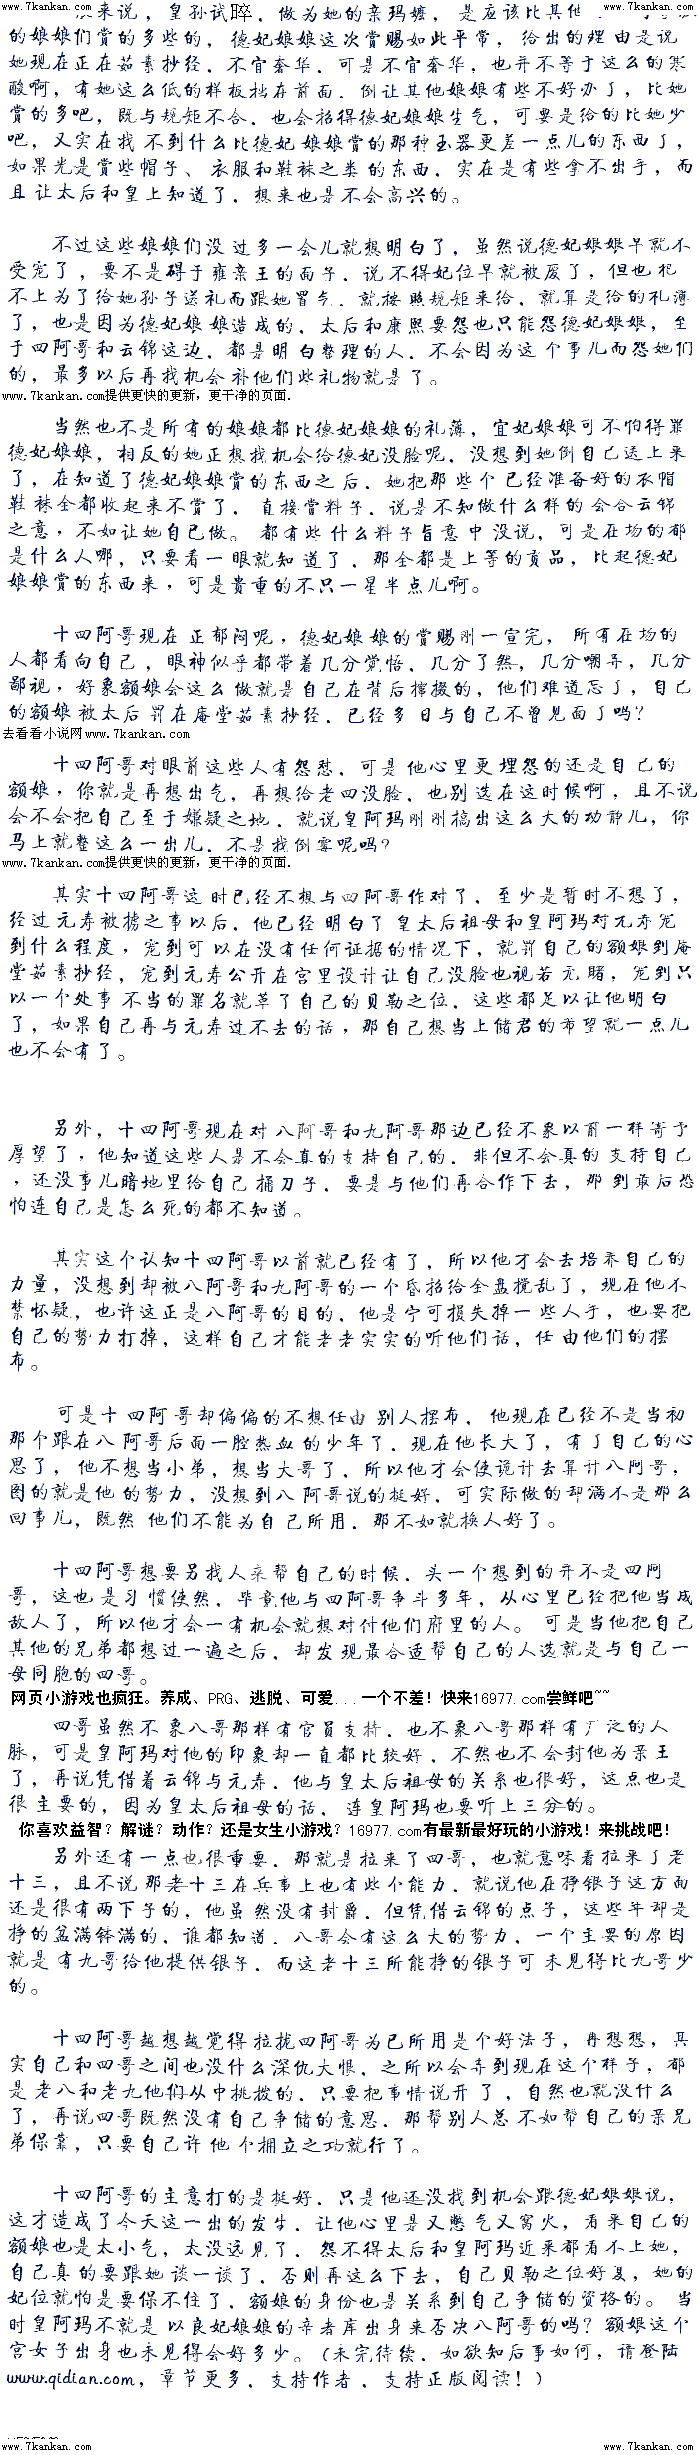 www.7kankan.com www.7kankan.com
来说，皇孙试晬，做为她的亲玛嬷，是应该比其他
的娘娘们赏的多些的，德妃娘娘这次赏赐如此平常，给出的理由是说
她现在正在茹素抄经，不宜奢华，可是不宜奢华，也并不等于这么的寒
酸啊，有她这么低的样板拦在前面，倒让其他娘娘有些不好办了，比她
赏的多吧，既与规矩不合，也会招得德妃娘娘生气，可要是给的比她少
吧，又实在找不到什么比德妃娘娘赏的那种玉器更差一点儿的东西了，
如果光是赏些帽子、衣服和鞋袜之类的东西，实在是有些拿不出手，而
且让太后和皇上知道了，想来也是不会高兴的。
不过这些娘娘们没过多一会儿就想明白了，虽然说德妃娘娘早就不
受宠了，要不是碍于雍亲王的面子，说不得妃位早就被废了，但也犯
不上为了给她孙子送礼而跟她冒气，就按照规矩来给，就算是给的礼薄
了，也是因为德妃娘娘造成的，太后和康熙要怨也只能怨德妃娘娘，至
于四阿哥和云锦这边，都是明白整理的人，不会因为这个事儿而怨她们
的，最多以后再找机会补他们些礼物就是了。
www.7kankan.com提供更快的更新，更干净的页面.
当然也不是所有的娘娘都比德妃娘娘的礼薄，宜妃娘娘可不怕得罪
德妃娘娘，相反的她正想找机会给德妃没脸呢，没想到她倒自己送上来
了，在知道了德妃娘娘赏的东西之后，她把那些个已经准备好的衣帽
鞋袜全都收起来不赏了，直接赏料子，说是不知做什么样的会合云锦
之意，不如让她自已做。都有些什么料子旨意中没说，可是在场的都
是什么人哪，只要看一眼就知道了，那全都是上等的贡品，比起德妃
娘娘赏的东西来，可是贵重的不只一星半点儿啊。
十四阿哥现在正郁闷呢，德妃娘娘的赏赐刚一宣完，所有在场的
人都看向自己，眼神似乎都带着几分觉悟，几分了然，几分嘲弄，几分
鄙视，好象额娘会这么做就是自己在背后撺掇的，他们难道忘了，自己
的额娘被太后罚在庵堂茹素抄经，已经多日与自己不曾见面了吗？
去看看小说网www.7kankan.com
十四阿哥对眼前这些人有怨怼，可是他心里更埋怨的还是自己的
额娘，你就是再想出气，再想给老四没脸，也别选在这时候啊，且不说
会不会把自己至于嫌疑之地，就说皇阿玛刚刚搞出这么大的动静儿，你
马上就整这么一出儿，不是找倒霉呢吗？
www.7kankan.com提供更快的更新，更干净的页面.
其实十四阿哥这时已经不想与四阿哥作对了，至少是暂时不想了，
经过元寿被掳之事以后，他已经明白了皇太后祖母和皇阿玛对元寿宠
到什么程度，宠到可以在没有任何证据的情况下，就罚自己的额娘到庵
堂茹素抄经，宠到元寿公开在宫里设计让自己没脸也视若无睹，宠到只
以一个处事不当的罪名就革了自己的贝勒之位，这些都足以让他明白
了，如果自己再与元寿过不去的话，那自己想当上储君的希望就一点儿
也不会有了。
另外，十四阿哥现在对八阿哥和九阿哥那边已经不象以前一样寄予
厚望了，他知道这些人是不会真的支持自己的，非但不会真的支持自己
，还没事儿暗地里给自己捅刀子，要是与他们再合作下去，那到最后恐
怕连自己是怎么死的都不知道。
其实这个认知十四阿哥以前就已经有了，所以他才会去培养自己的
力量，没想到却被八阿哥和九阿哥的一个昏招给全盘搅乱了，现在他不
禁怀疑，也许这正是八阿哥的目的，他是宁可损失掉一些人手，也要把
自己的势力打掉，这样自己才能老老实实的听他们话，任由他们的摆
布。
可是十四阿哥却偏偏的不想任由别人摆布，他现在已经不是当初
那个跟在八阿哥后面一腔热血的少年了，现在他长大了，有了自己的心
思了，他不想当小弟，想当大哥了，所以他才会使诡计去算计八阿哥，
图的就是他的势力，没想到八阿哥说的挺好，可实际做的却满不是那么
回事儿，既然他们不能为自己所用，那不如就换人好了。
十四阿哥想要另找人来帮自己的时候，头一个想到的并不是四阿
哥，这也是习惯使然，毕竟他与四阿哥争斗多年，从心里已经把他当成
敌人了，所以他才会一有机会就想对付他们府里的人。可是当他把自己
其他的兄弟都想过一遍之后，却发现最合适帮自己的人选就是与自己一
母同胞的四哥。
网页小游戏也疯狂。养成、PRG、逃脱、可爱...一个不差！快来16977.com尝鲜吧~~
四哥虽然不象八哥那样有官员支持，也不象八哥那样有广泛的人
脉，可是皇阿玛对他的印象却一直都比较好，不然也不会封他为亲王
了，再说凭借着云锦与元寿，他与皇太后祖母的关系也很好，这点也是
很主要的，因为皇太后祖母的话，连皇阿玛也要听上三分的。
你喜欢益智？解谜？动作？还是女生小游戏？16977.com有最新最好玩的小游戏！来挑战吧！
另外还有一点也很重要，那就是拉来了四哥，也就意味着拉来了老
十三，且不说那老十三在兵事上也有些个能力，就说他在挣银子这方面
还是很有两下子的，他虽然没有封爵，但凭借云锦的点子，这些年却是
挣的盆满钵满的，谁都知道，八哥会有这么大的势力，一个主要的原因
就是有九哥给他提供银子，而这老十三所能挣的银子可未见得比九哥少
的。
十四阿哥越想越觉得拉拢四阿哥为已所用是个好法子，再想想，其
实自己和四哥之间也没什么深仇大恨，之所以会弄到现在这个样子，都
是老八和老九他们从中挑拨的，只要把事情说开了，自然也就没什么
了，再说四哥既然没有自己争储的意思，那帮别人总不如帮自己的亲兄
弟保靠，只要自己许他个拥立之功就行了。
十四阿哥的主意打的是挺好，只是他还没找到机会跟德妃娘娘说，
这才造成了今天这一出的发生，让他心里是又憋气又窝火，看来自己的
额娘也是太小气，太没远见了，怨不得太后和皇阿玛近来都看不上她，
自己真的要跟她谈一谈了，否则再这么下去，自己贝勒之位好复，她的
妃位就怕是要保不住了，额娘的身份也是关系到自己争储的资格的。当
时皇阿玛不就是以良妃娘娘的辛者库出身来否决八阿哥的吗？额娘这个
宫女子出身也未见得会好多少。（未完待续，如欲知后事如何，请登陆
www.qidian.com，章节更多，支持作者，支持正版阅读！）
www.7kankan.com www.7kankan.com